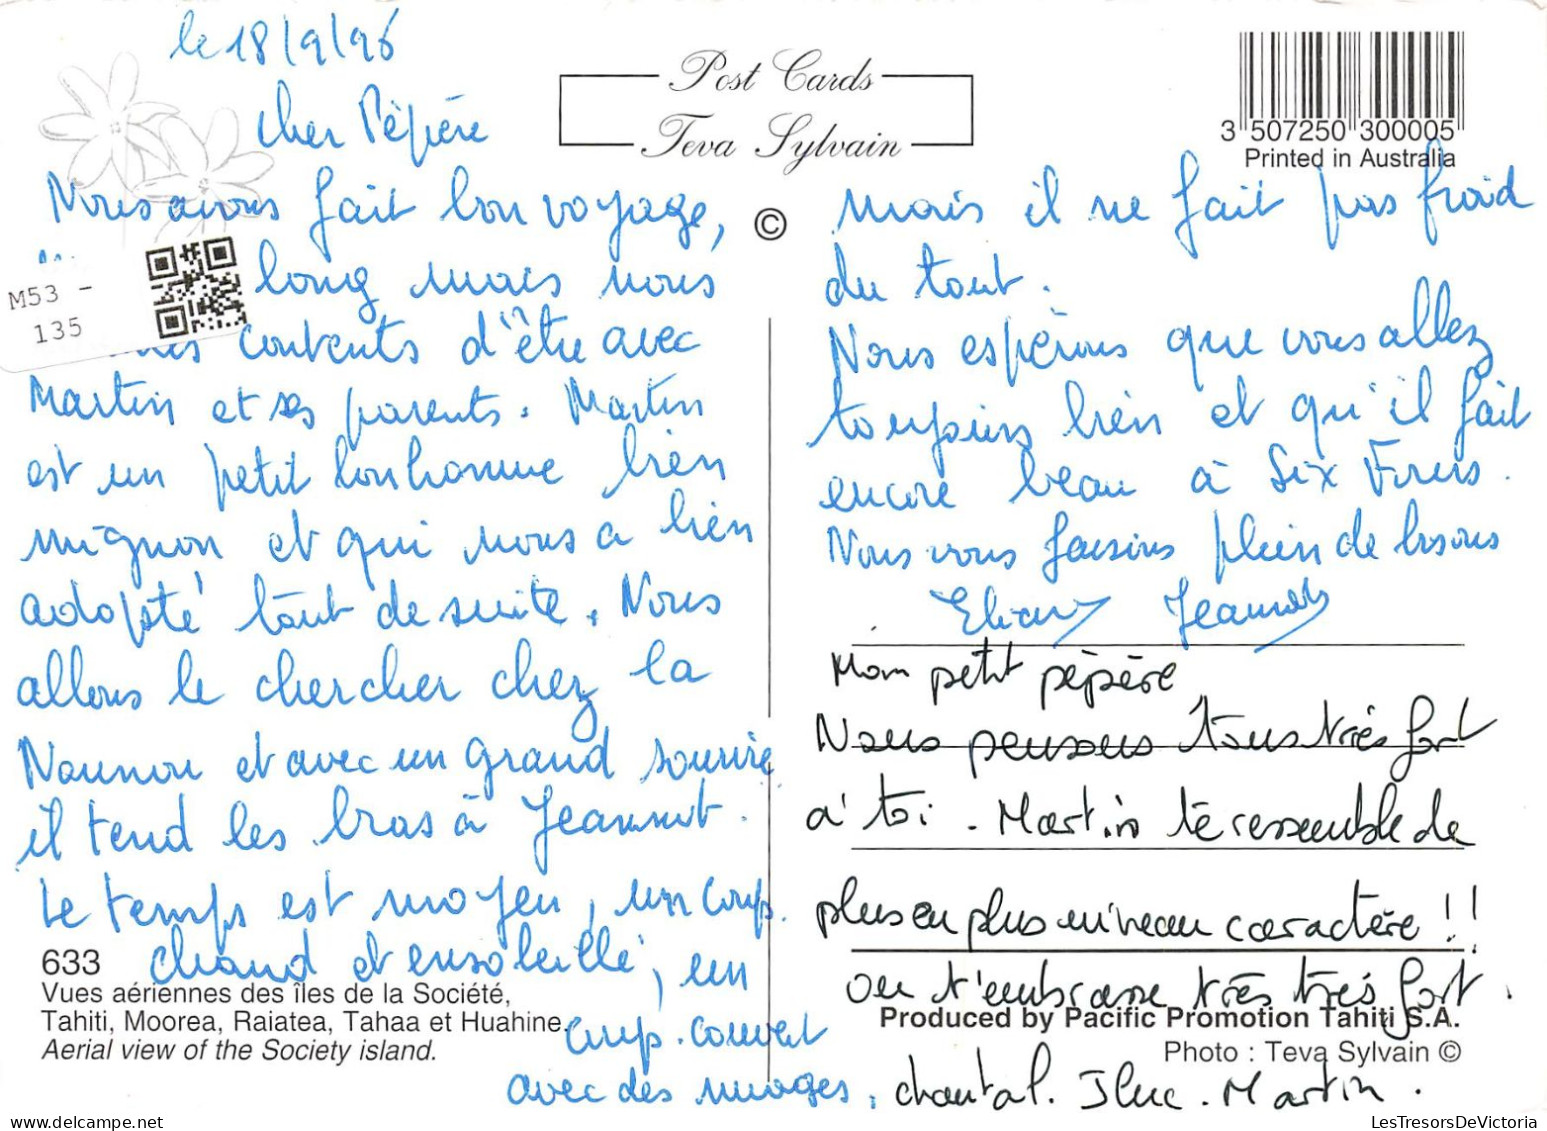 le 18/9/96
Cher Pépère
Nous avons fait bon voyage,
long mais nous
contents d'être avec
Martin et ses parents. Martin
est un petit bonhomme bien
mignon et qui nous a bien
adopté tout de suite. Nous
allons le chercher chez la
Nounou et avec un grand sourire
il tend les bras à Jeannot.
Le temps est moyen, un coup
chaud et ensoleillé, un
coup couvert
avec des nuages,
633
Vues aériennes des îles de la Société,
Tahiti, Moorea, Raiatea, Tahaa et Huahine.
Aerial view of the Society island.
M53 -
135
Post Cards
Teva Sylvain
©
3 507250 300005
Printed in Australia
mais il ne fait pas froid
du tout.
Nous espérons que vous allez
toujours bien et qu'il fait
encore beau à Six Fours.
Nous vous faisons plein de bisous
Eliane Jeannot
Mon petit pépère
Nous pensons tous très fort
à toi. Martin te ressemble de
plus en plus niveau caractère !!
on t'embrasse très très fort.
Produced by Pacific Promotion Tahiti S.A.
Photo : Teva Sylvain ©
chantal. JLuc. Martin.
LesTresorsDeVictoria